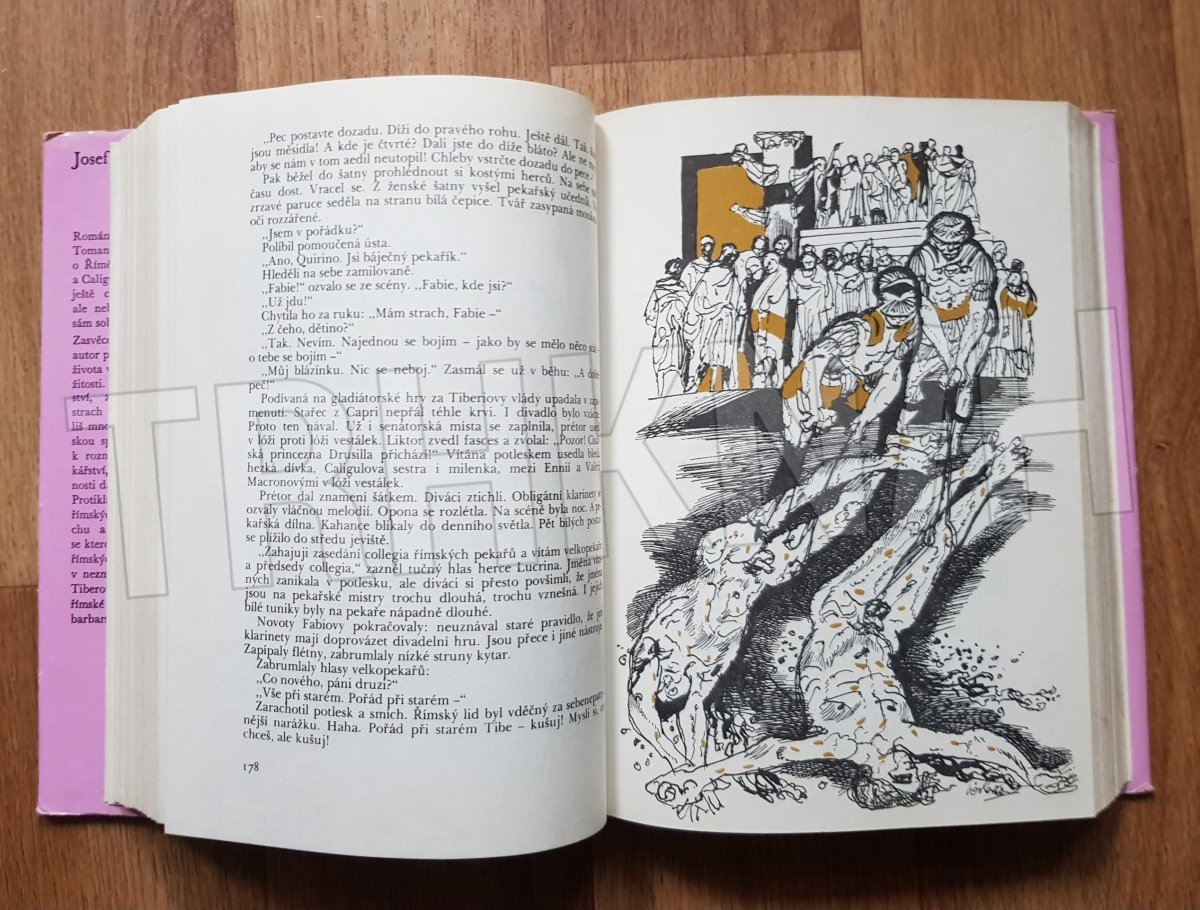 Josef
Román
Toman
o Řím
a Calig
ještě
ale
sám
Zasvěc
autor
života
žitosti.
ství,
strach
líš
skou
k
kářství,
nosti
Protikl
římskýc
chu a
se
římskýc
v
Tibero
římské
barbar
„Pec postavte dozadu. Díži do pravého rohu. Ještě dál. Tak.
jsou měsidla! A kde je čtvrté? Dali jste do díže bláto? Ale
aby se nám v tom aedil neutopil! Chleby vstrčte dozadu do pece –“
Pak běžel do šatny prohlédnout si kostýmy herců. Na sebe
času dost. Vracel se. Z ženské šatny vyšel pekařský učedník.
zrzavé paruce seděla na stranu bílá čepice. Tvář zasypaná moukou,
oči rozzářené.
„Jsem v pořádku?“
Políbil pomoučená ústa.
„Ano, Quirino. Jsi báječný pekařík.“
Hleděli na sebe zamilovaně.
„Fabie!“ ozvalo se ze scény. „Fabie, kde jsi?“
„Už jdu!“
Chytila ho za ruku: „Mám strach, Fabie –“
„Z čeho, dětino?“
„Tak. Nevím. Najednou se bojím – jako by se mělo něco stát –
o tebe se bojím –“
„Můj blázínku. Nic se neboj.“ Zasmál se už v běhu: „A
peč!“
Podívaná na gladiátorské hry za Tiberiovy vlády upadala v zapo-
menutí. Stařec z Capri nepřál téhle krvi. I divadlo bylo
Proto ten nával. Už i senátorská místa se zaplnila, prétor
v lóži proti lóži vestálek. Liktor zvedl fasces a zvolal: „Pozor! Císař-
ská princezna Drusilla přichází!“ Vítána potleskem usedla
hezká dívka, Caligulova sestra i milenka, mezi Ennií a
Macronovými v lóži vestálek.
Prétor dal znamení šátkem. Diváci ztichli. Obligátní klarinety se
ozvaly vláčnou melodií. Opona se rozletla. Na scéně byla noc. A pe-
kařská dílna. Kahance blikaly do denního světla. Pět bílých postav
se plížilo do středu jeviště.
„Zahajuji zasedání collegia římských pekařů a vítám velkopekaře
a předsedy collegia,“ zazněl tučný hlas herce Lucrina. Jména
ných zanikala v potlesku, ale diváci si přesto povšimli, že jména
jsou na pekařské mistry trochu dlouhá, trochu vznešná. I jejich
bílé tuniky byly na pekaře nápadně dlouhé.
Novoty Fabiovy pokračovaly: neuznával staré pravidlo, že jen
klarinety mají doprovázet divadelní hru. Jsou přece i jiné nástroje.
Zapípaly flétny, zabrumlaly nízké struny kytar.
Zabrumlaly hlasy velkopekařů:
„Co nového, páni druzi?“
„Vše při starém. Pořád při starém –“
Zarachotil potlesk a smích. Římský lid byl vděčný za sebenepatr-
nější narážku. Haha. Pořád při starém Tibe – kušuj! Mysli si, co
chceš, ale kušuj!
178
TRHKNIH